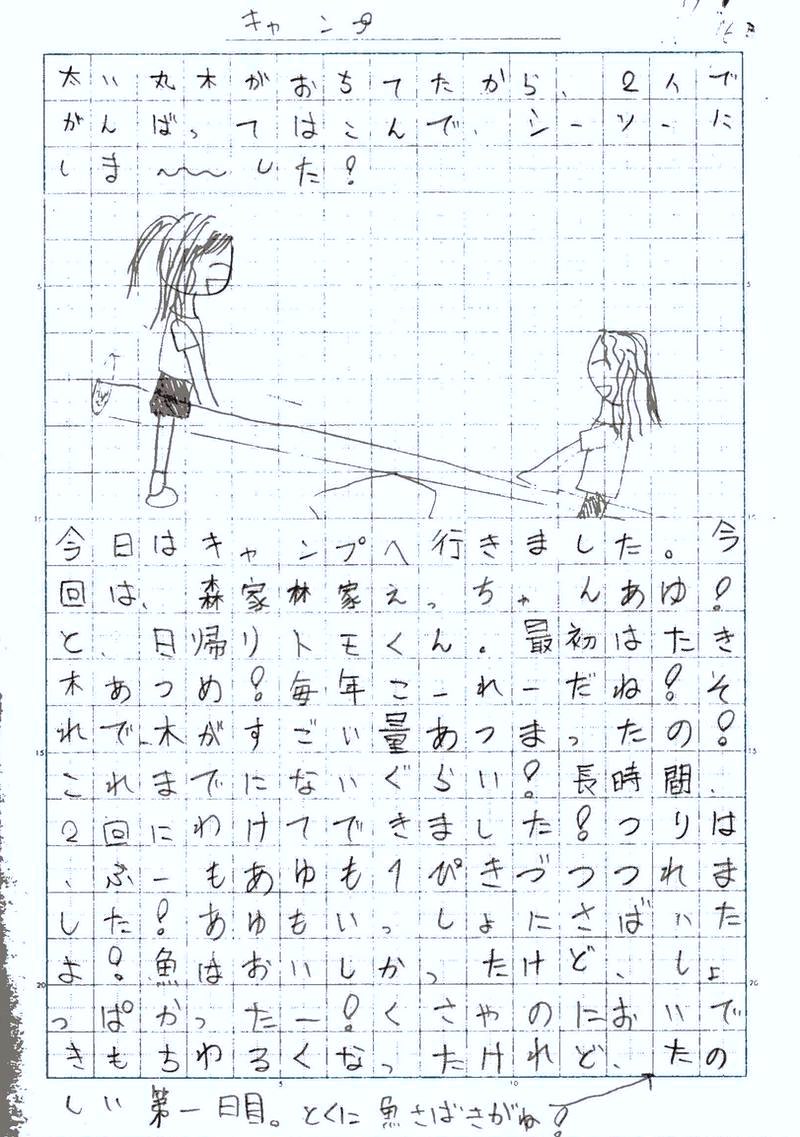 キャンプ
太い丸木がおちてたから、2人で
がんばってはこんで、シーソーに
しま〜〜した!
今日はキャンプへ行きました。今
回は、森家林家えっちゃんあゆ!
と、日帰りトモくん。最初はたき
木あつめ!毎年こーれーだね!そ
れで、木がすごい量あつまったの!
これまでにないぐらい!長時間、
2回にわけてできました!つりは
、ふーもあゆも1ぴきづつつれま
した!あゆもいっしょにさばいた
よ!魚はおいしかったけど、しょ
っぱかったー!くさやのにおいで
きもちわるくなったけれど、たの
しい第一日目。とくに魚さばきがね!